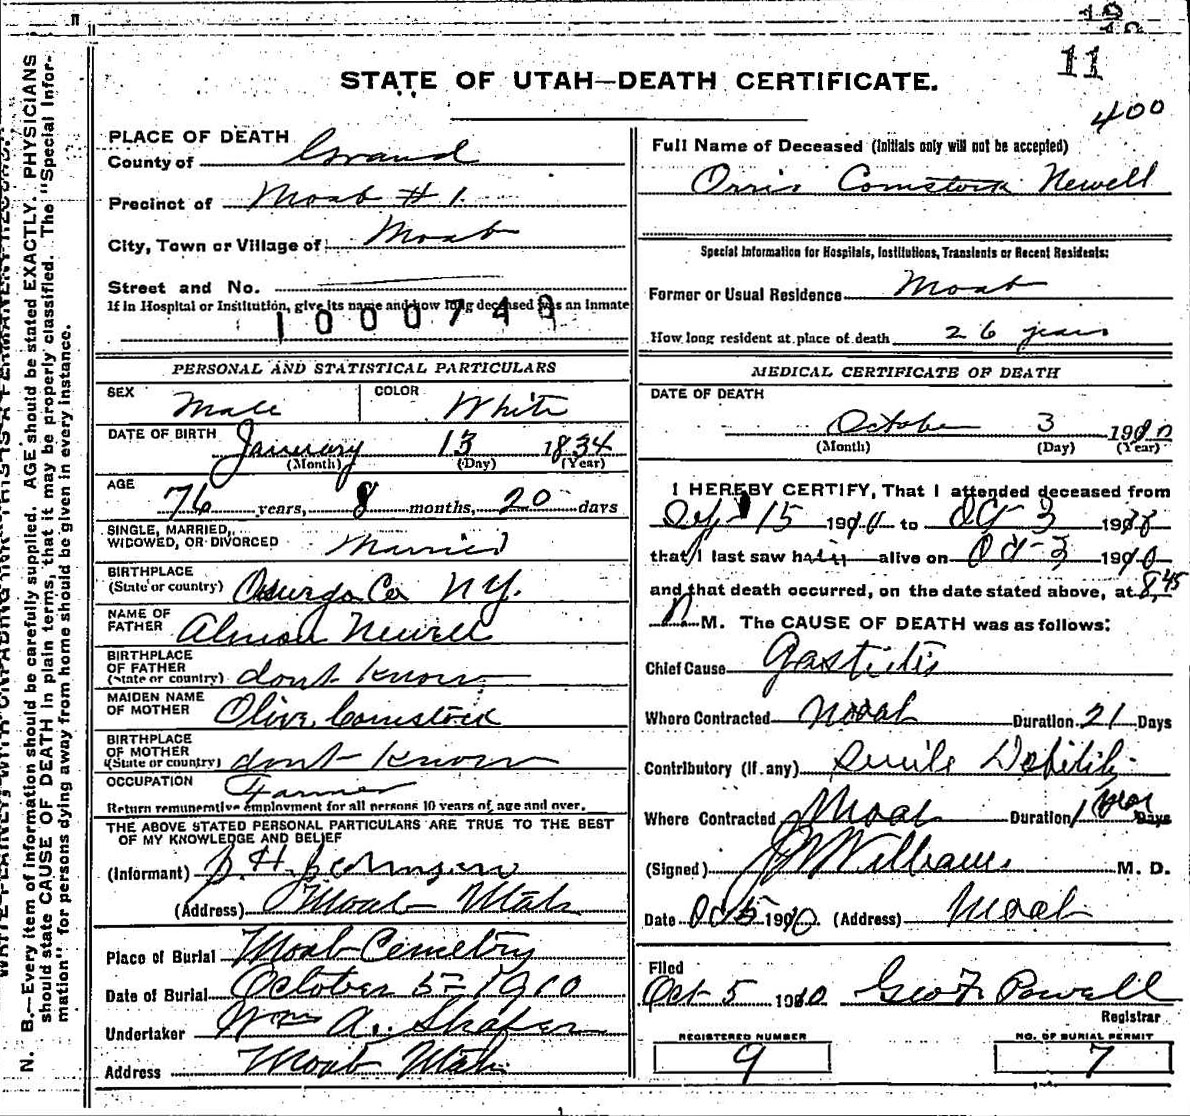 11
400
STATE OF UTAH—DEATH CERTIFICATE.
PLACE OF DEATH
County of Grand
Precinct of Moab #1.
City, Town or Village of Moab
Street and No.
If in Hospital or Institution, give its name and how long deceased was an inmate
1000749
PERSONAL AND STATISTICAL PARTICULARS
SEX Male COLOR White
DATE OF BIRTH January 13 1834
(Month) (Day) (Year)
AGE
76 years, 8 months, 20 days
SINGLE, MARRIED,
WIDOWED, OR DIVORCED Married
BIRTHPLACE
(State or country) Co N.Y.
NAME OF
FATHER Almon Newell
BIRTHPLACE
OF FATHER
(State or country) dont know
MAIDEN NAME
OF MOTHER Olive Comstock
BIRTHPLACE
OF MOTHER
(State or country) dont know
OCCUPATION Farmer
Return remunerative employment for all persons 10 years of age and over.
THE ABOVE STATED PERSONAL PARTICULARS ARE TRUE TO THE BEST
OF MY KNOWLEDGE AND BELIEF
(Informant) H. Johnson
(Address) Moab Utah
Place of Burial Moab Cemetry
Date of Burial October 5 - 1910
Undertaker Wm A. Shafer
Address Moab Utah
Full Name of Deceased (Initials only will not be accepted)
Orris Comstock Newell
Special Information for Hospitals, Institutions, Transients or Recent Residents:
Former or Usual Residence Moab
How long resident at place of death 26 years
MEDICAL CERTIFICATE OF DEATH
DATE OF DEATH
October 3 1910
(Month) (Day) (Year)
I HEREBY CERTIFY, That I attended deceased from
15 1910 to Oct 3 19
that I last saw him alive on Oct 3 1910
and that death occurred, on the date stated above, at 8,45
M. The CAUSE OF DEATH was as follows:
Chief Cause Gastritis
Where Contracted Moab Duration 21 Days
Contributory (if any) Senile Debility
Where Contracted Moab Duration 1 Year Days
(Signed) J W Williams M. D.
Date Oct 5 1910 (Address) Moab
Filed
Oct 5 1910 Geo F. Powell
Registrar
REGISTERED NUMBER
9
NO. OF BURIAL PERMIT
7
N. B.—Every item of information should be carefully supplied. AGE should be stated EXACTLY. PHYSICIANS
should state CAUSE OF DEATH in plain terms, that it may be properly classified. The "Special Infor-
mation" for persons dying away from home should be given in every instance.